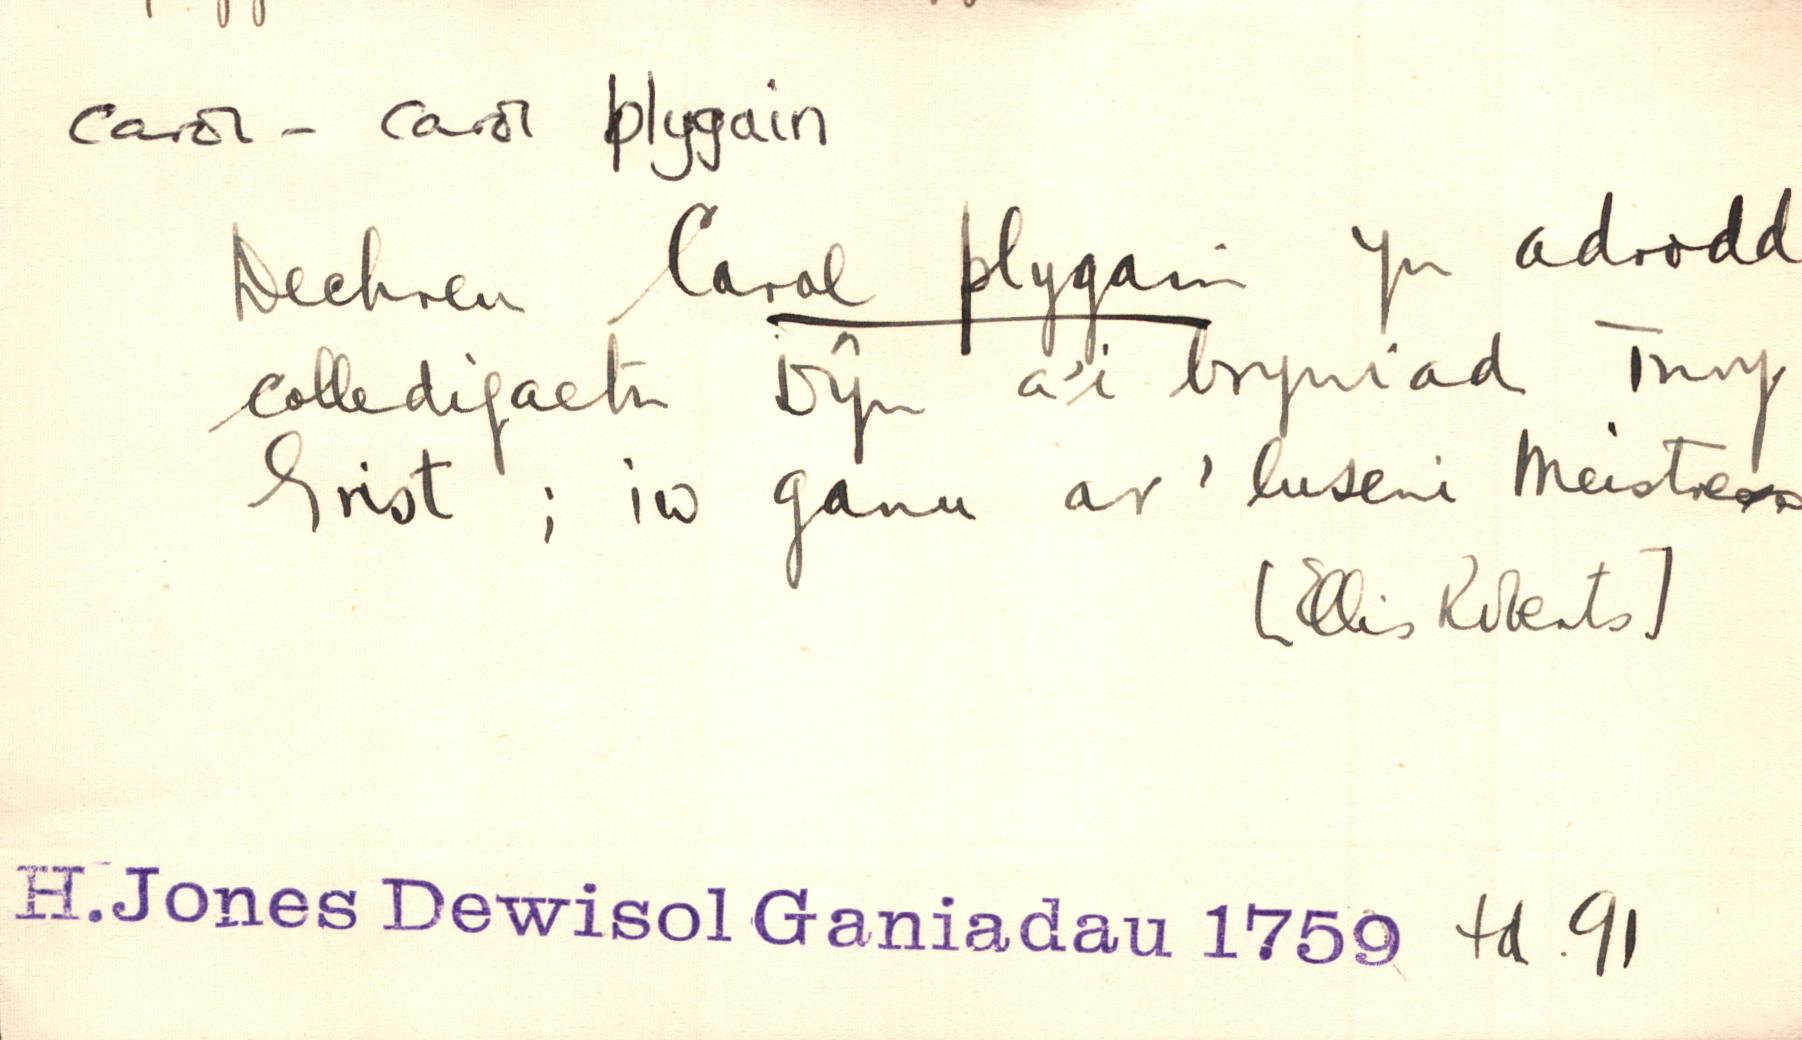 carol - carol plygain
Dechreu Carol plygain yn adrodd
colledigaeth Dŷn a'i bryniad Trwy
Grist ; iw ganu ar ' luseni Meistres
[Ellis Roberts]
H. Jones Dewisol Ganiadau 1759 td. 91